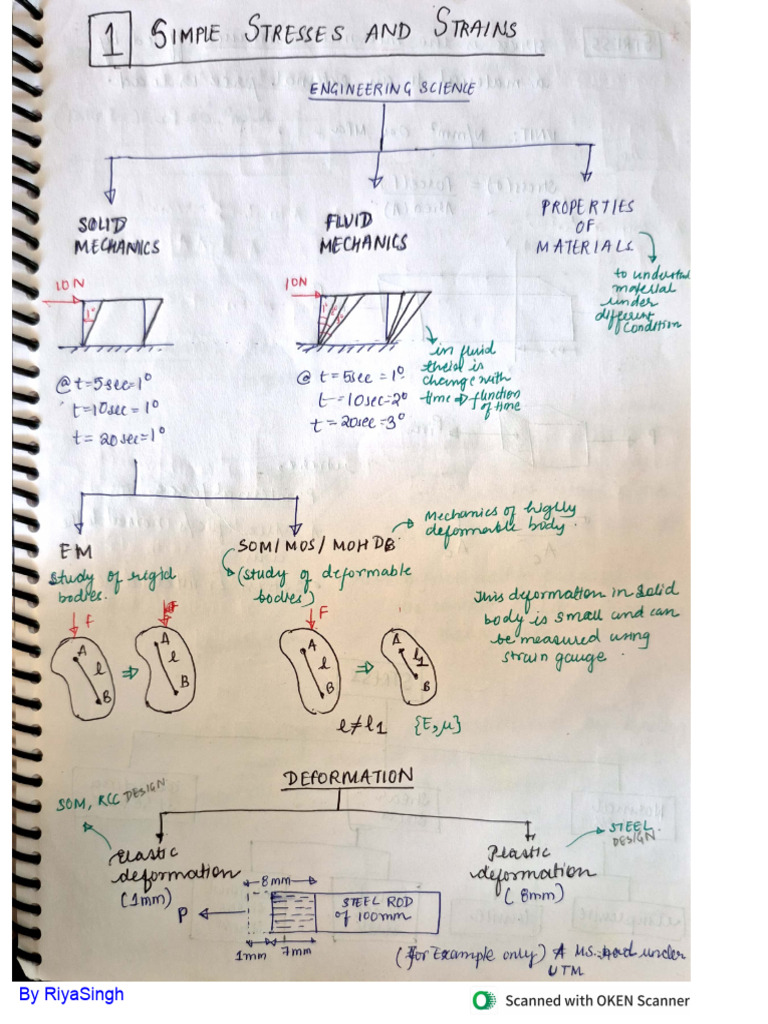 1 SIMPLE STRESSES AND STRAINS
ENGINEERING SCIENCE
SOLID
MECHANICS
FLUID
MECHANICS
PROPERTIES
OF
MATERIALS
to understand
material
under
different
condition
10 N
1°
@ t=5sec=1°
t=10sec=1°
t=20sec=1°
10N
1°
@ t=5sec=1°
t=10sec=2°
t=20sec=3°
in fluid
change with
time ⇒ function
of time
EM
study of rigid
bodies.
SOM/MOS/MOHDB
(study of deformable
bodies)
Mechanics of highly
deformable body.
F
A
l
B
⇒
F
A
l
B
F
A
l
B
⇒
A
l1
B
l≠l1 {E,μ}
This deformation in solid
body is small and can
be measured using
strain gauge.
DEFORMATION
SOM, RCC DESIGN
Elastic
deformation
(1mm)
STEEL
DESIGN
Plastic
deformation
(8mm)
8mm
P
STEEL ROD
of 100mm
1mm 7mm
(for Example only) A MS rod under
UTM
By RiyaSingh
Scanned with OKEN Scanner